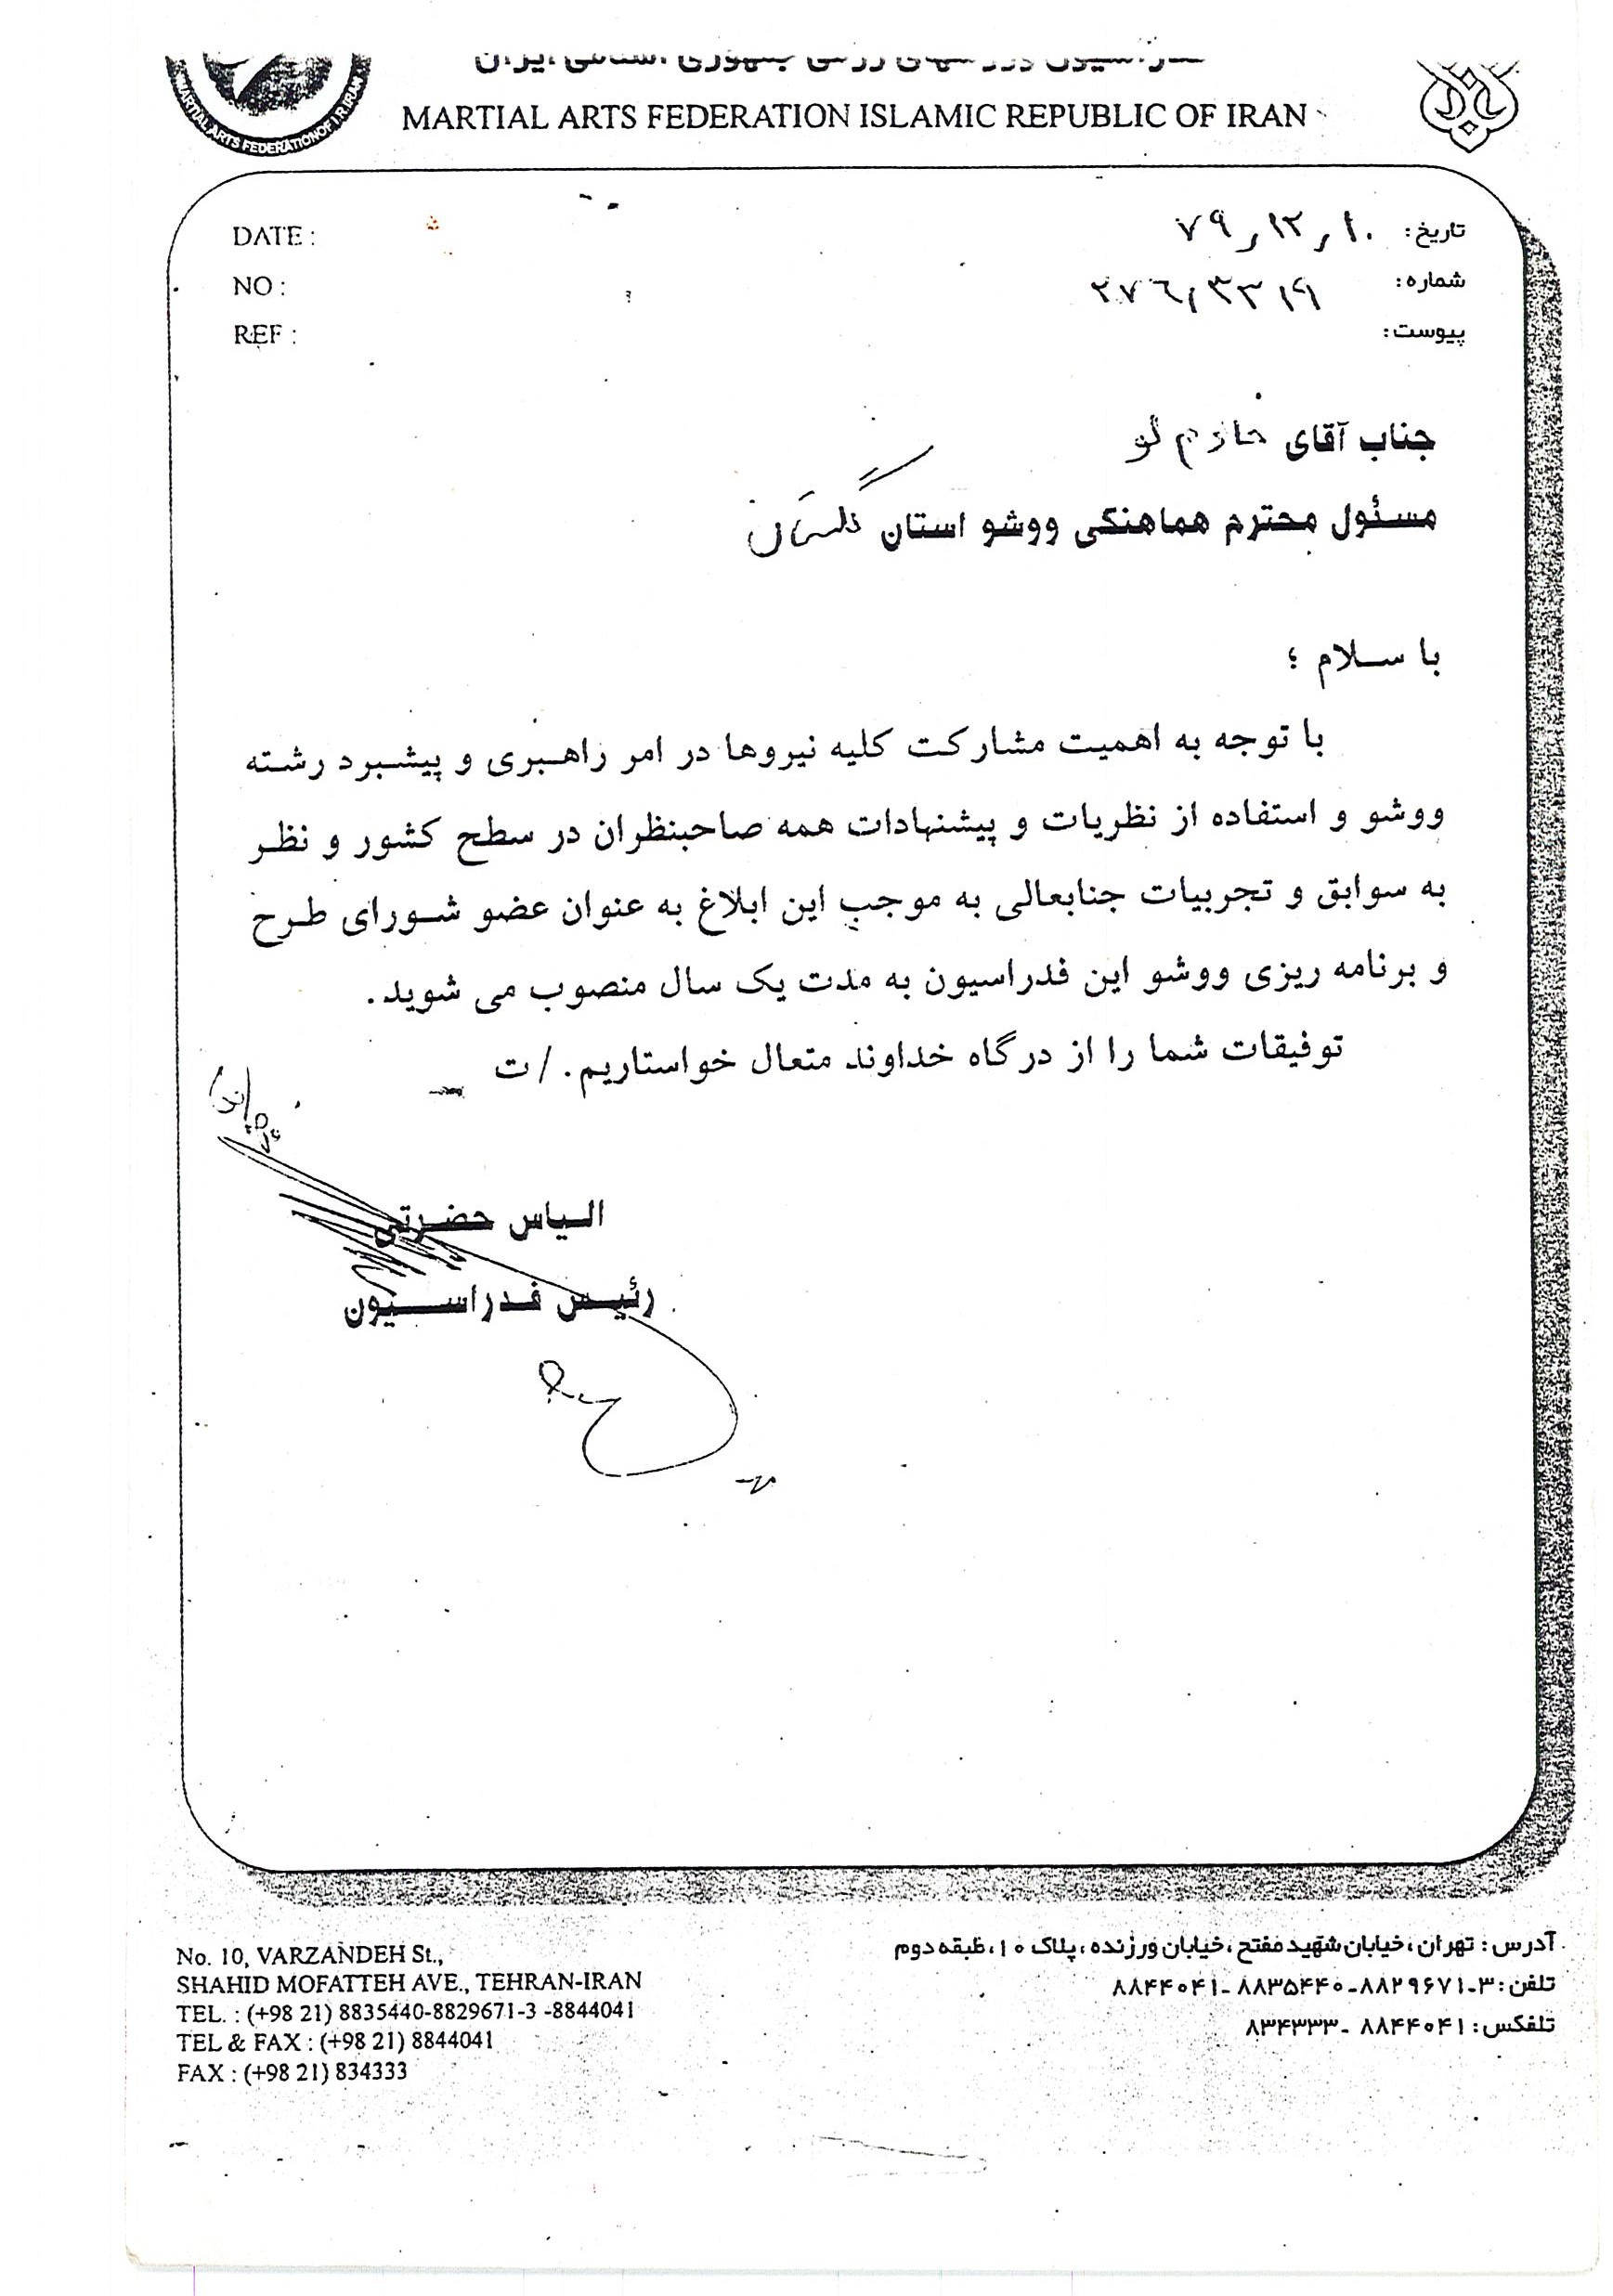 فدراسیون ورزشهای رزمی جمهوری اسلامی ایران
MARTIAL ARTS FEDERATION ISLAMIC REPUBLIC OF IRAN
MARTIAL ARTS FEDERATION OF I.R.IRAN
DATE :
NO :
REF :
تاریخ: ۷۹,۱۲,۱۰
شماره: ۲۷۶/۳۳۱۹
پیوست:
جناب آقای خازم لو
مسئول محترم هماهنگی ووشو استان گلستان
با سلام ؛
با توجه به اهمیت مشارکت کلیه نیروها در امر راهبری و پیشبرد رشته
ووشو و استفاده از نظریات و پیشنهادات همه صاحبنظران در سطح کشور و نظر
به سوابق و تجربیات جنابعالی به موجب این ابلاغ به عنوان عضو شورای طرح
و برنامه ریزی ووشو این فدراسیون به مدت یک سال منصوب می شوید.
توفیقات شما را از درگاه خداوند متعال خواستاریم. /ت
الیاس حضرتی
رئیس فدراسیون
آدرس: تهران، خیابان شهید مفتح، خیابان ورزنده، پلاک ۱۰، طبقه دوم
تلفن: ۳-۸۸۲۹۶۷۱-۸۸۳۵۴۴۰-۸۸۴۴۰۴۱
تلفکس: ۸۸۴۴۰۴۱ -۸۳۴۳۳۳
No. 10, VARZANDEH St.,
SHAHID MOFATTEH AVE., TEHRAN-IRAN
TEL. : (+98 21) 8835440-8829671-3 -8844041
TEL & FAX : (+98 21) 8844041
FAX : (+98 21) 834333